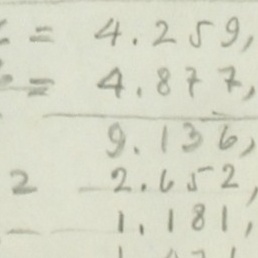 = 4.259,
= 4.877,
9.136,
2 2.652,
1.181,